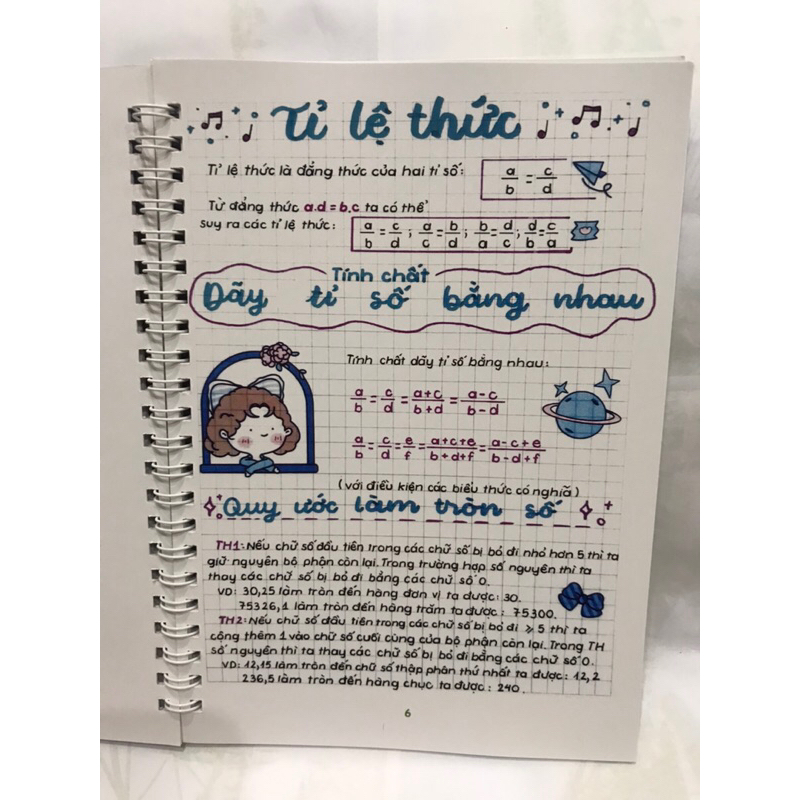 Tỉ lệ thức
Tỉ lệ thức là đẳng thức của hai tỉ số: a/b = c/d
Từ đẳng thức a.d = b.c ta có thể
suy ra các tỉ lệ thức: a/b = c/d ; a/c = b/d ; b/a = d/c ; d/b = c/a
Tính chất
Dãy tỉ số bằng nhau
Tính chất dãy tỉ số bằng nhau:
a/b = c/d = a+c/b+d = a-c/b-d
a/b = c/d = e/f = a+c+e/b+d+f = a-c+e/b-d+f
(với điều kiện các biểu thức có nghĩa)
Quy ước làm tròn số
TH1: Nếu chữ số đầu tiên trong các chữ số bị bỏ đi nhỏ hơn 5 thì ta
giữ nguyên bộ phận còn lại. Trong trường hợp số nguyên thì ta
thay các chữ số bị bỏ đi bằng các chữ số 0.
VD: 30,25 làm tròn đến hàng đơn vị ta được: 30.
75326,1 làm tròn đến hàng trăm ta được: 75300.
TH2: Nếu chữ số đầu tiên trong các chữ số bị bỏ đi ≥ 5 thì ta
cộng thêm 1 vào chữ số cuối cùng của bộ phận còn lại. Trong TH
số nguyên thì ta thay các chữ số bị bỏ đi bằng các chữ số 0.
VD: 12,15 làm tròn đến chữ số thập phân thứ nhất ta được: 12,2
236,5 làm tròn đến hàng chục ta được: 240.
6